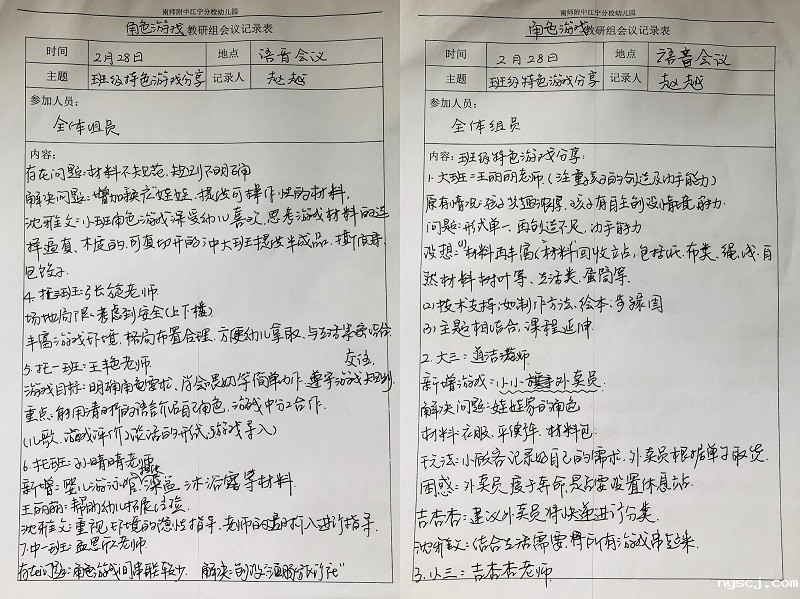 南师附中江宁分校幼儿园
角色游戏教研组会议记录表
时间 2月28日 地点 语音会议
主题 班级特色游戏分享 记录人 赵越
参加人员：
全体组员
内容：
存在问题：材料不规范，规则不明确
解决问题：增加娃娃，提供可操作性的材料，
沈雅文：小班角色游戏深受幼儿喜欢，思考游戏材料的选
择逼真、木质的，可真切开的，中大班提供半成品，
包饺子.
4. 托班：张 老师
场地局限，考虑到安全(上下楼)
丰富游戏环境，格局布置合理，方便幼儿拿取，与
5. 托一班：王艳老师 交流
游戏目标：明确角色要求，学会喂奶等简单动作，遵守游戏规则
重点：能用清晰的语言介绍自己角色，游戏中分工合作.
(儿歌、游戏评价，谈话的形式，游戏导入)
6. 托班：孙晴晴老师
新增：婴儿游泳馆 沐浴露等材料.
王丽萌：帮助幼儿拓展经验.
沈雅文：重视环境的隐性指导，老师的适时介入进行指导.
7. 中一班：孟思欣老师
存在问题：角色游戏间串联较少. 解决：创设"酒 旅行社"
南师附中江宁分校幼儿园
角色游戏教研组会议记录表
时间 2月28日 地点 语音会议
主题 班级特色游戏分享 记录人 赵越
参加人员：
全体组员
内容：班级特色游戏分享：
1. 大班：王丽萌老师.（注重孩子的创造及动手能力）
原有情况：孩子兴趣浓厚，孩子有自主创设情景能力.
问题：形式单一，再创造不足，动手能力
设想：(1)材料再丰富("材料"回收站，包括纸、布类、绳、线、自
然材料树叶等、生活类、蛋筒等.
(2) 技术支持：如制作方法、绘本、步骤图
(3) 主题相结合，课程延伸.
2. 大三： 老师
新增游戏：小小外卖员.
解决问题：娃娃家的角色
材料：衣服、平衡车、材料包.
玩法：小顾客记录好自己的需求，外卖员根据单子取货.
困惑：外卖员疲于奔命，是否要设置休息站.
吉杏杏：建议外卖员将快递进行分类.
沈雅文：结合生活需要，将所有游戏串起来.
3. 小三：吉杏杏老师.
nyscj.com